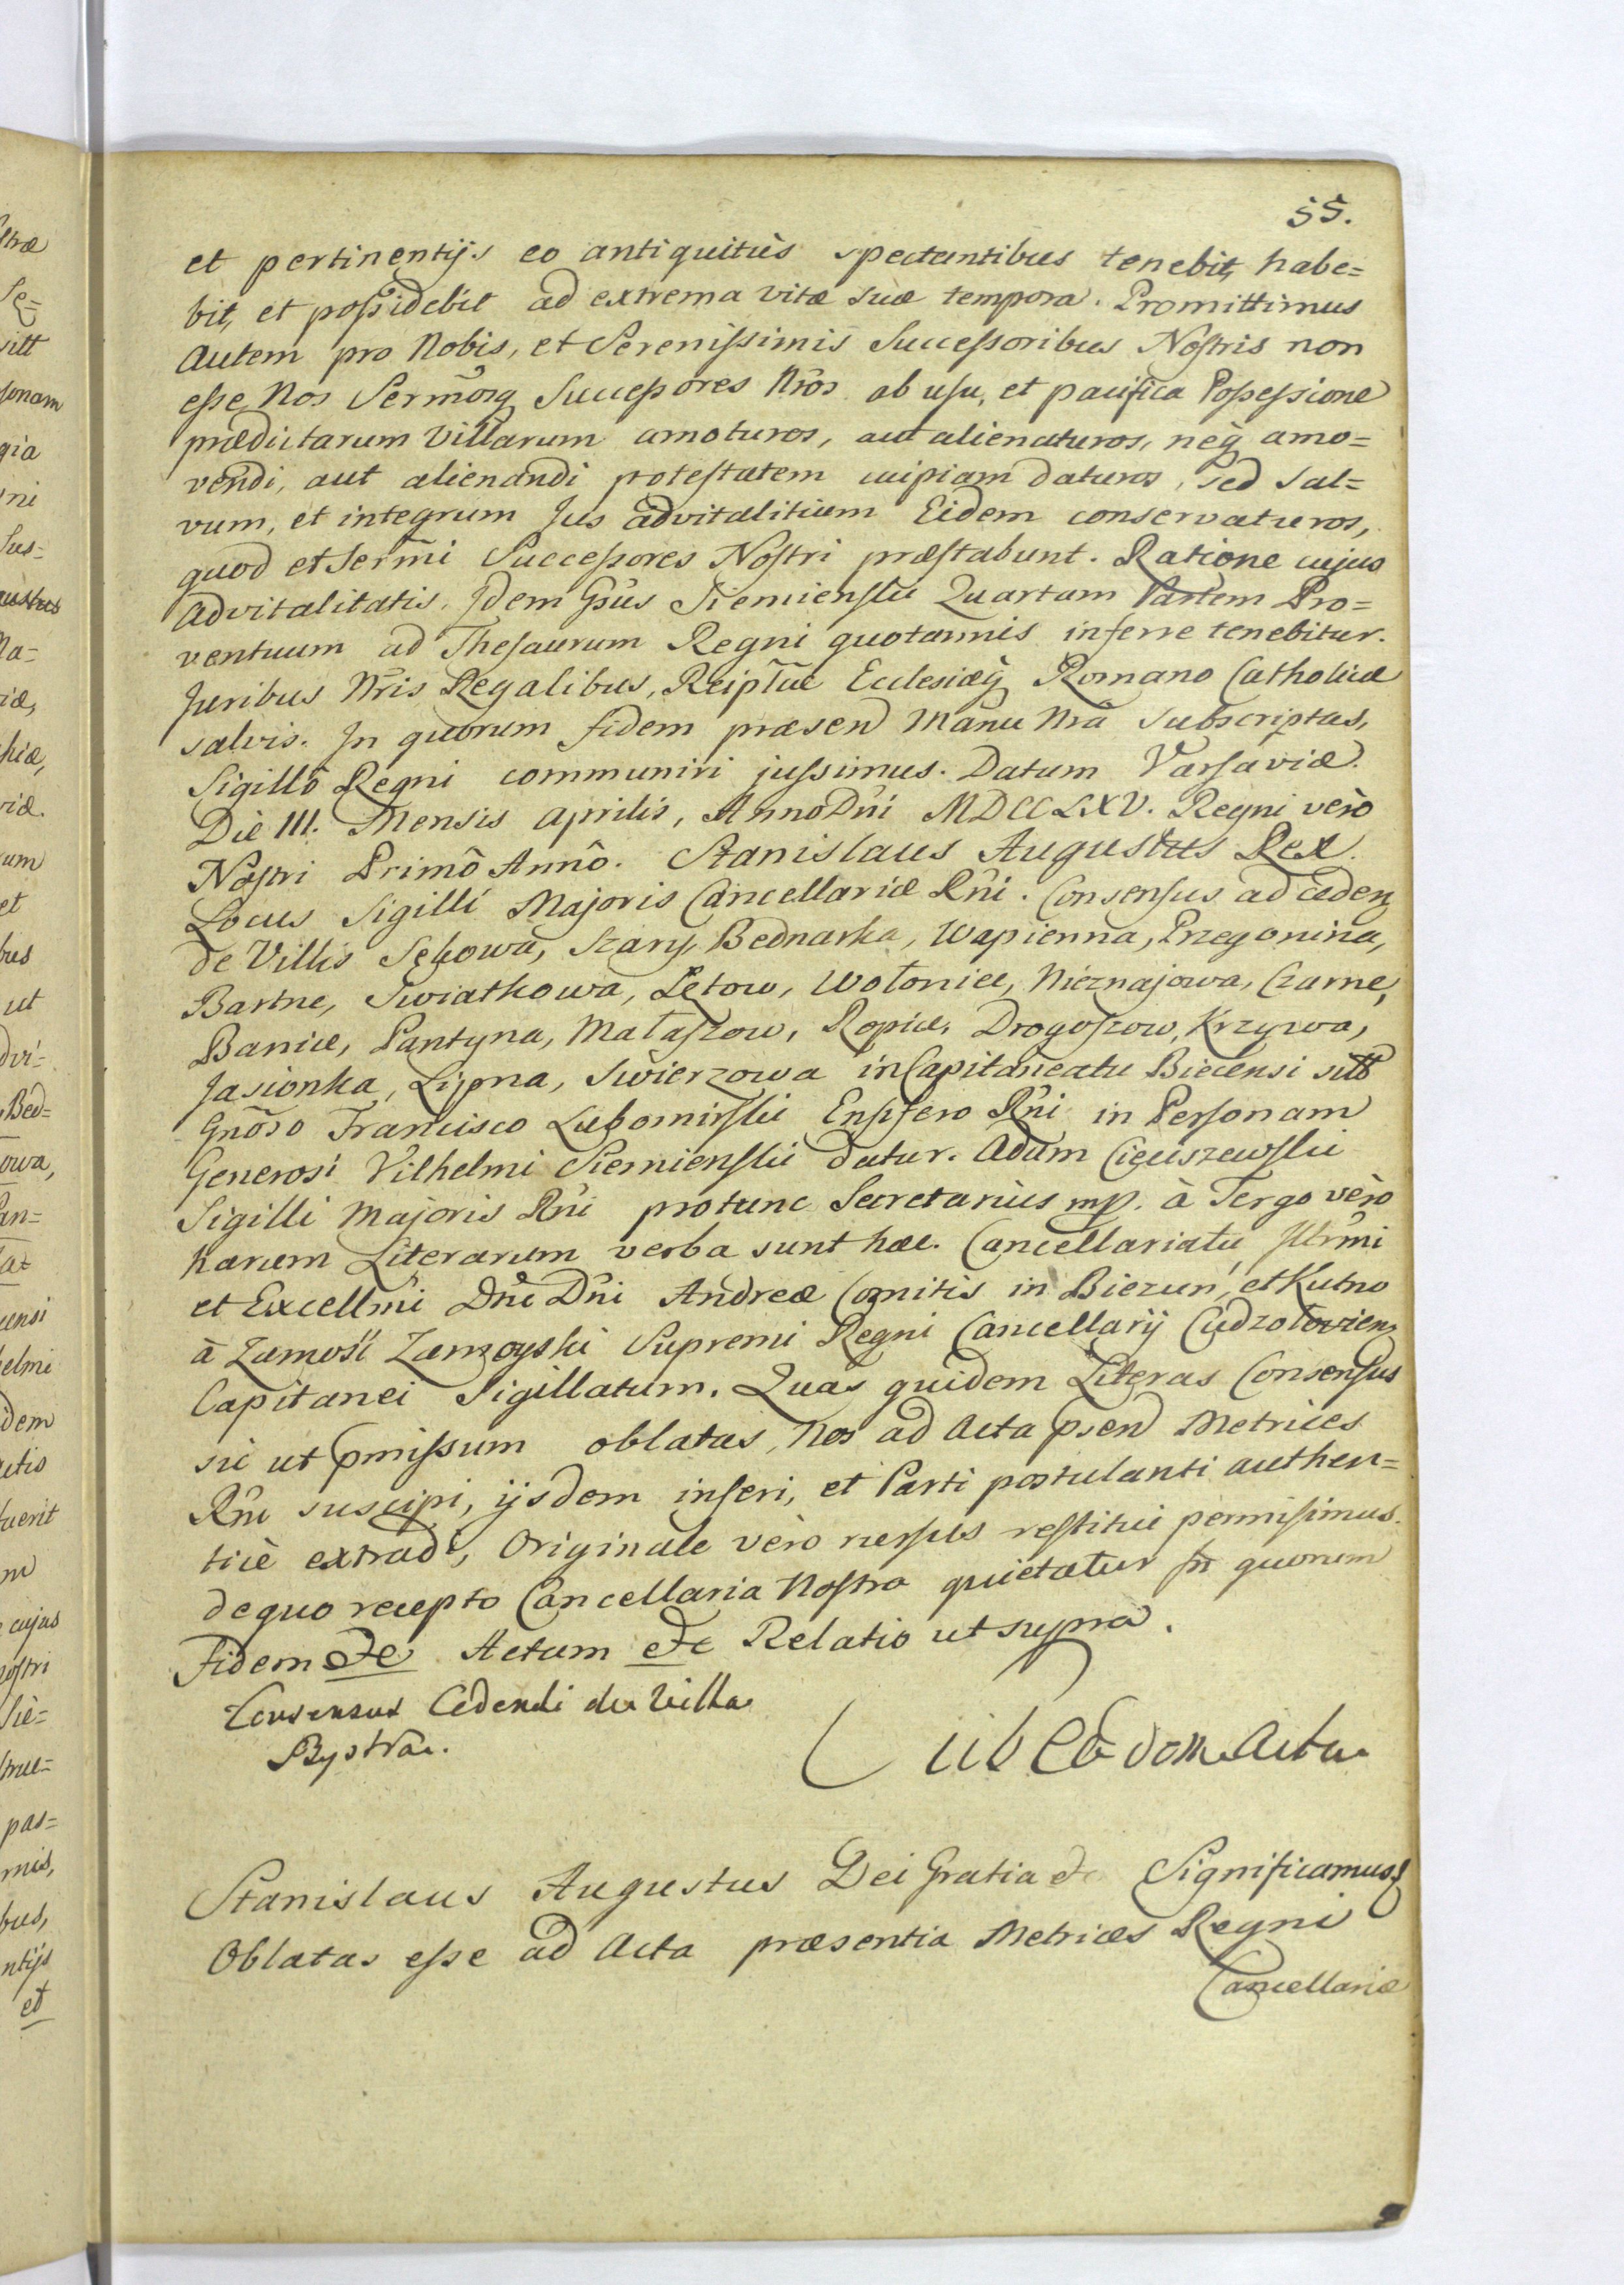 55.
et pertinentijs eo antiquitùs spectantibus tenebit, habe=
bit, et possidebit ad extrema vitæ suæ tempora. Promittimus
autem pro Nobis, et Serenissimis Successoribus Nostris non
esse Nos Sermõsq Successores Nrõs ab usu, et pacifica Possessione
prædictarum Villarum amoturos, aut alienaturos, neq̃ amo=
vendi, aut alienandi potestatem cuipiam daturos, sed sal=
vum, et integrum Jus advitalitium Eidem conservaturos,
quod et Serm̃i Successores Nostri præstabunt. Ratione cujus
advitalitatis, Idem Gsũs Siemienski Quartam Partem Pro=
ventuum ad Thesaurum Regni quotannis inferre tenebitur.
Juribus Nr̃is Regalibus, Reipl̃cæ Ecclesiæq̃ Romano Catholicæ
salvis. In quorum fidem præsend Manu Nrã subscriptas,
Sigillô Regni communiri jussimus. Datum Varsaviæ.
Die III. Mensis Aprilis, Anno Dñi MDCCLXV. Regni verò
Nostri Primô Annô. Stanislaus Augustus Rex.
Locus Sigilli Majoris Cancellariæ Rñi. Consensus ad ceden
de Villis Sękowa, Szary, Bednarka, Wapienna, Przegonina,
Bartne, Swiatkowa, Lętow, Wołoniec, Nieznajowa, Czarne,
Banice, Pantyna, Małaszow, Ropice, Drogoszow, Krzywa,
Jasionka, Lipna, Swierzowa in Capitaneatu Biecensi sitt
Gnõso Francisco Lubomirski Ensifero Rñi in Personam
Generosi Vilhelmi Siemienski datur. Adam Cieciszewski
Sigilli Majoris Rñi protunc Secretarius mp. à Tergo verò
harum Literarum verba sunt hæc. Cancellariatu Illrm̃i
et Excellm̃i Dñi Dñi Andreæ Comitis in Biezun, et Kutno
à Zamość Zamoyski Supremi Regni Cancellarij
Capitanei Sigillatum. Quas quidem Literas Consensus
sic ut pmissum oblatas, Nos ad Acta psend Metrices
Rñi suscipi, ijsdem inseri, et Parti postulanti authen=
ticè extradi, Originale verò rursus restitui permisimus.
de quo recepto Cancellaria Nostra quietatur In quorum
fidem etc Actum etc Relatio ut supra.
Consensus Cedendi de Villa
Bystra.
Stanislaus Augustus Dei Gratia etc Significamus
Oblatas esse ad Acta præsentia Metrices Regni
Cancellariæ